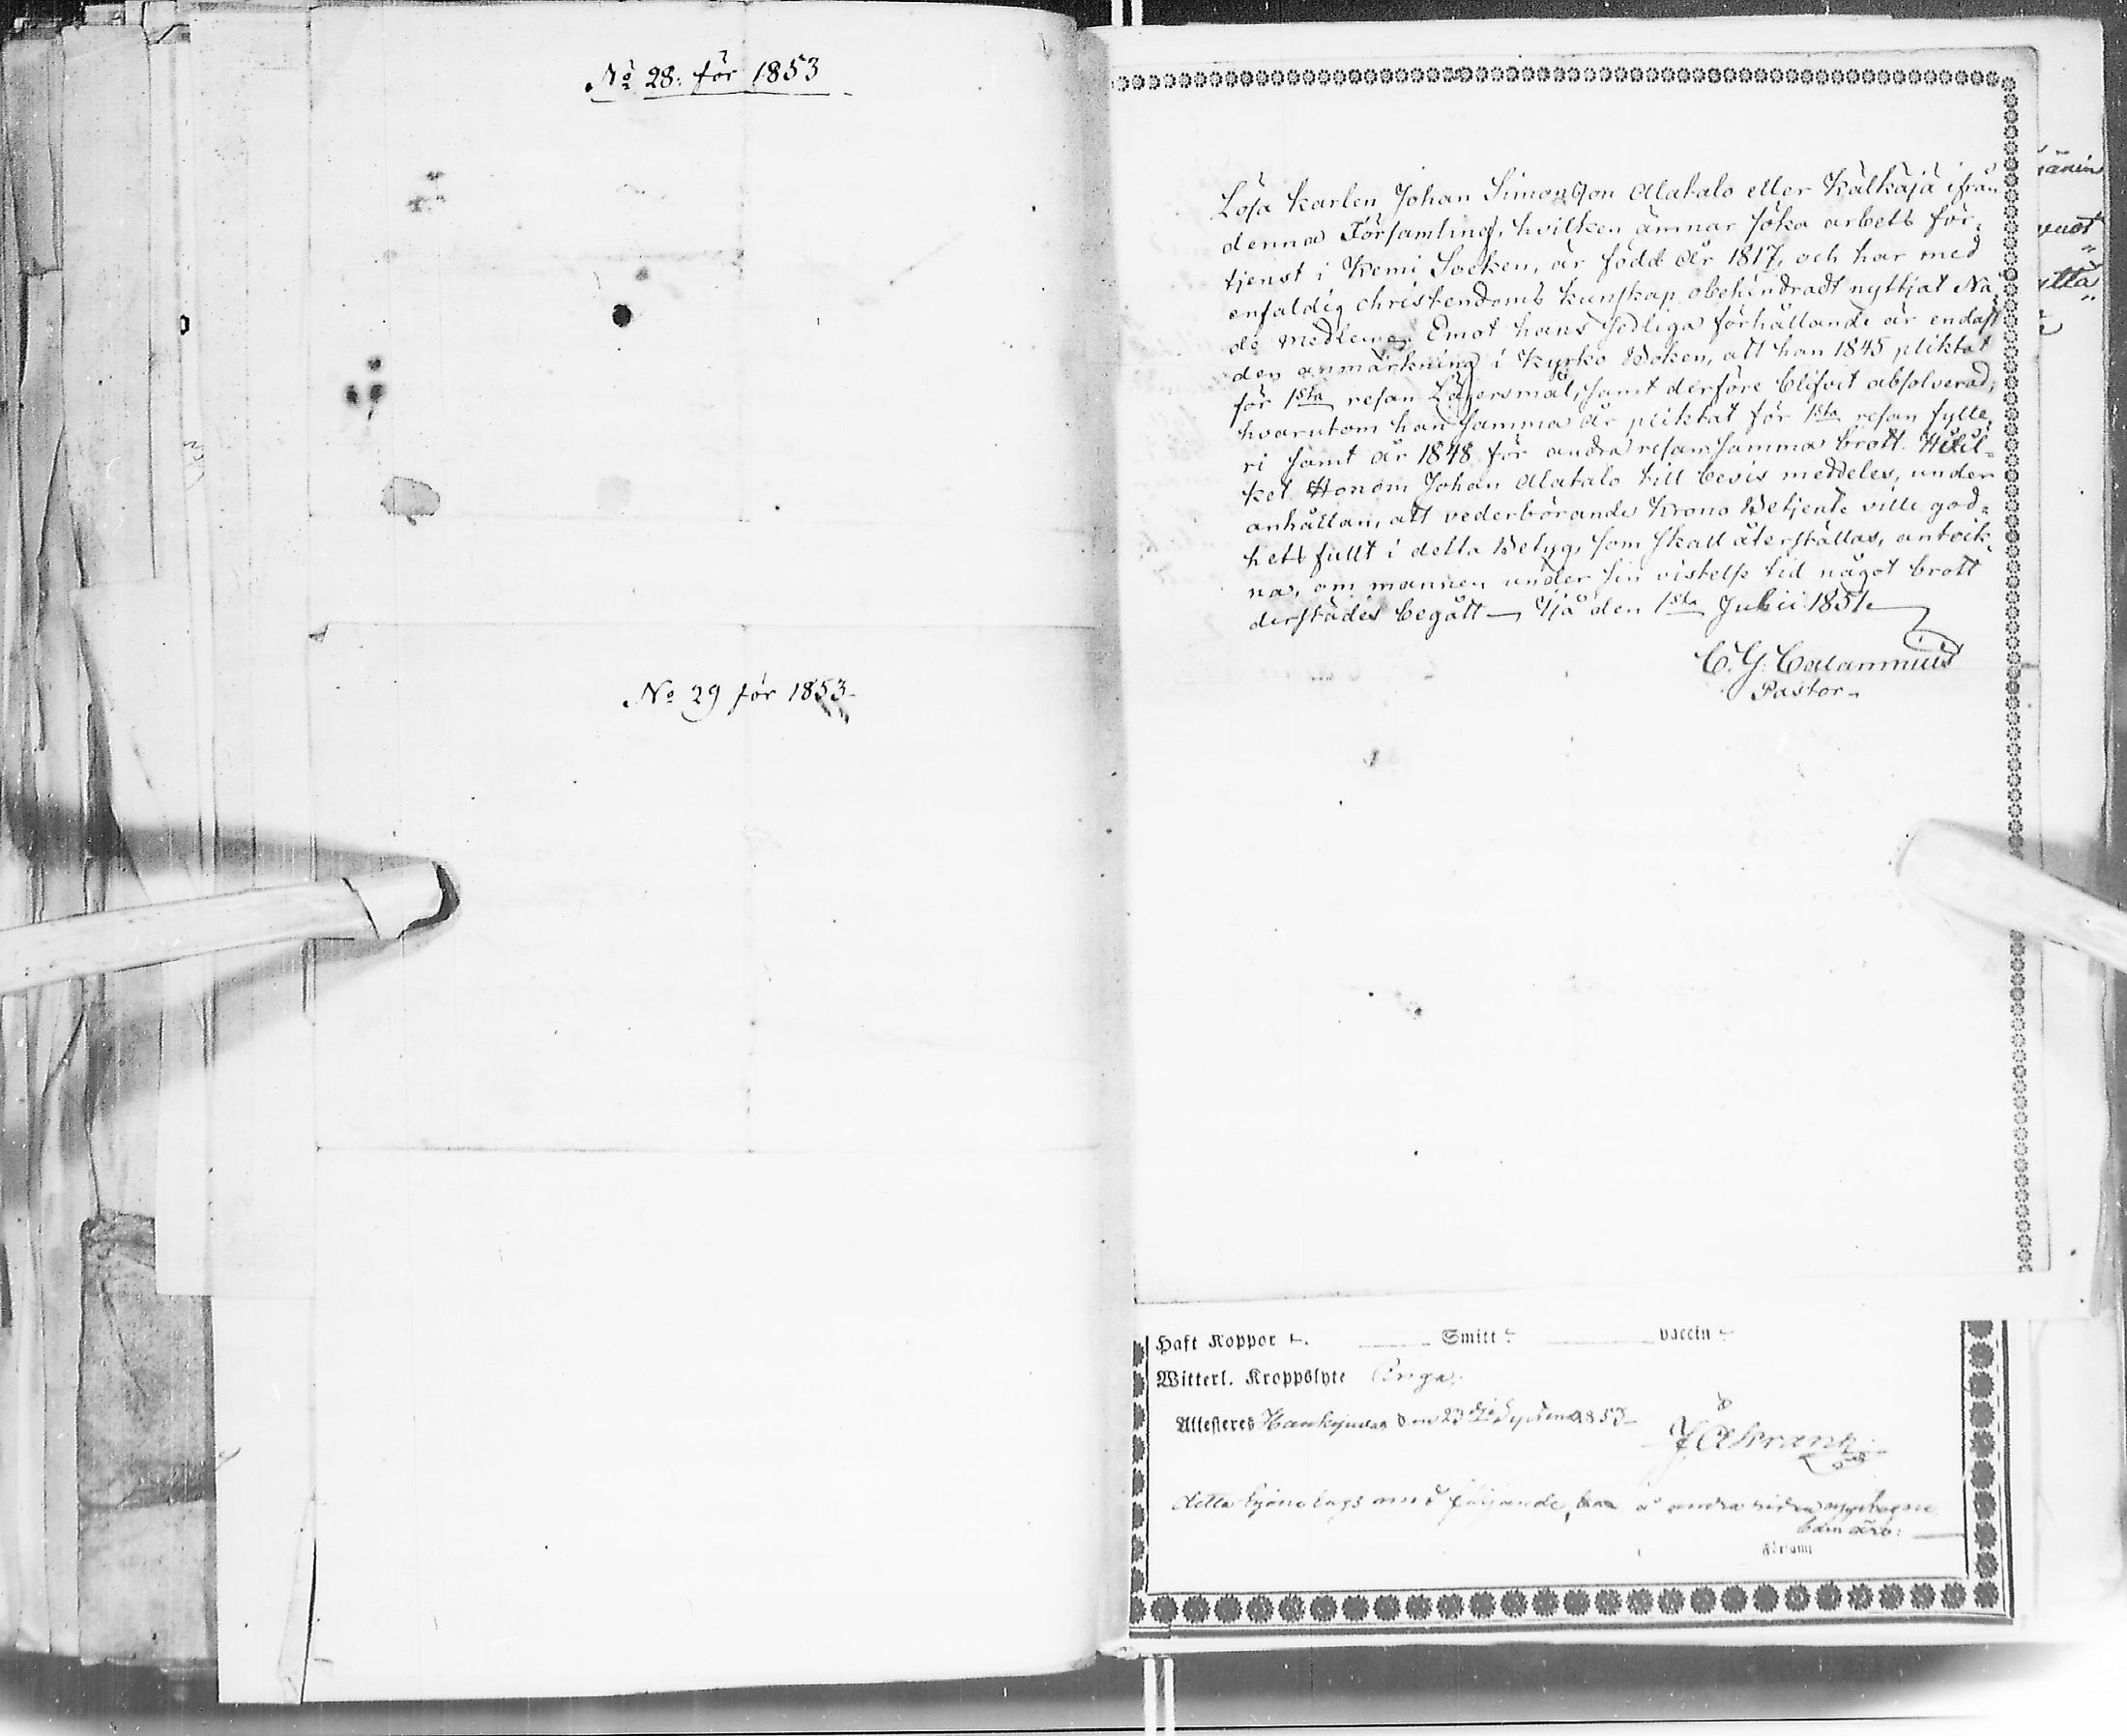 No 28: för 1853
No 29 för 1853
Lösa karlen Johan Simonsson Alatalo eller Kälkäjä ifrån
denna Församling, hvilken ämnar söka arbets för-
tjenst i Kemi Socken, är född år 1817, och har med
enfaldig christendoms kunskap obehindradt nyttjat Nå-
de medlen. Emot hans sedliga förhållande är endast
den anmärkning i Kyrko Boken, att han 1845 pliktat
för 1sta resan Lägersmål, samt derföre blifvit absolverad,
hvarutom han samma år pliktat för 1sta resan fylle-
ri samt år 1848 för andra resan samma brott. Hvil-
ket Honom Johan Alatalo till bevis meddeles, under
anhållan, att vederbörande Krono Betjente ville god-
hetsfullt i detta Betyg, som skall återställas, anteck-
na, om mannen under sin vistelse tid något brott
derstädes begått — Ijå den 1sta Julii 1851.
C. G. Calamnius
Pastor
Haft Koppor Smitt Vaccin
Witterl. Kroppslyte Inga.
Attesteres den 23 1853
detta följande, å andra sidan
barn äro:
Församl